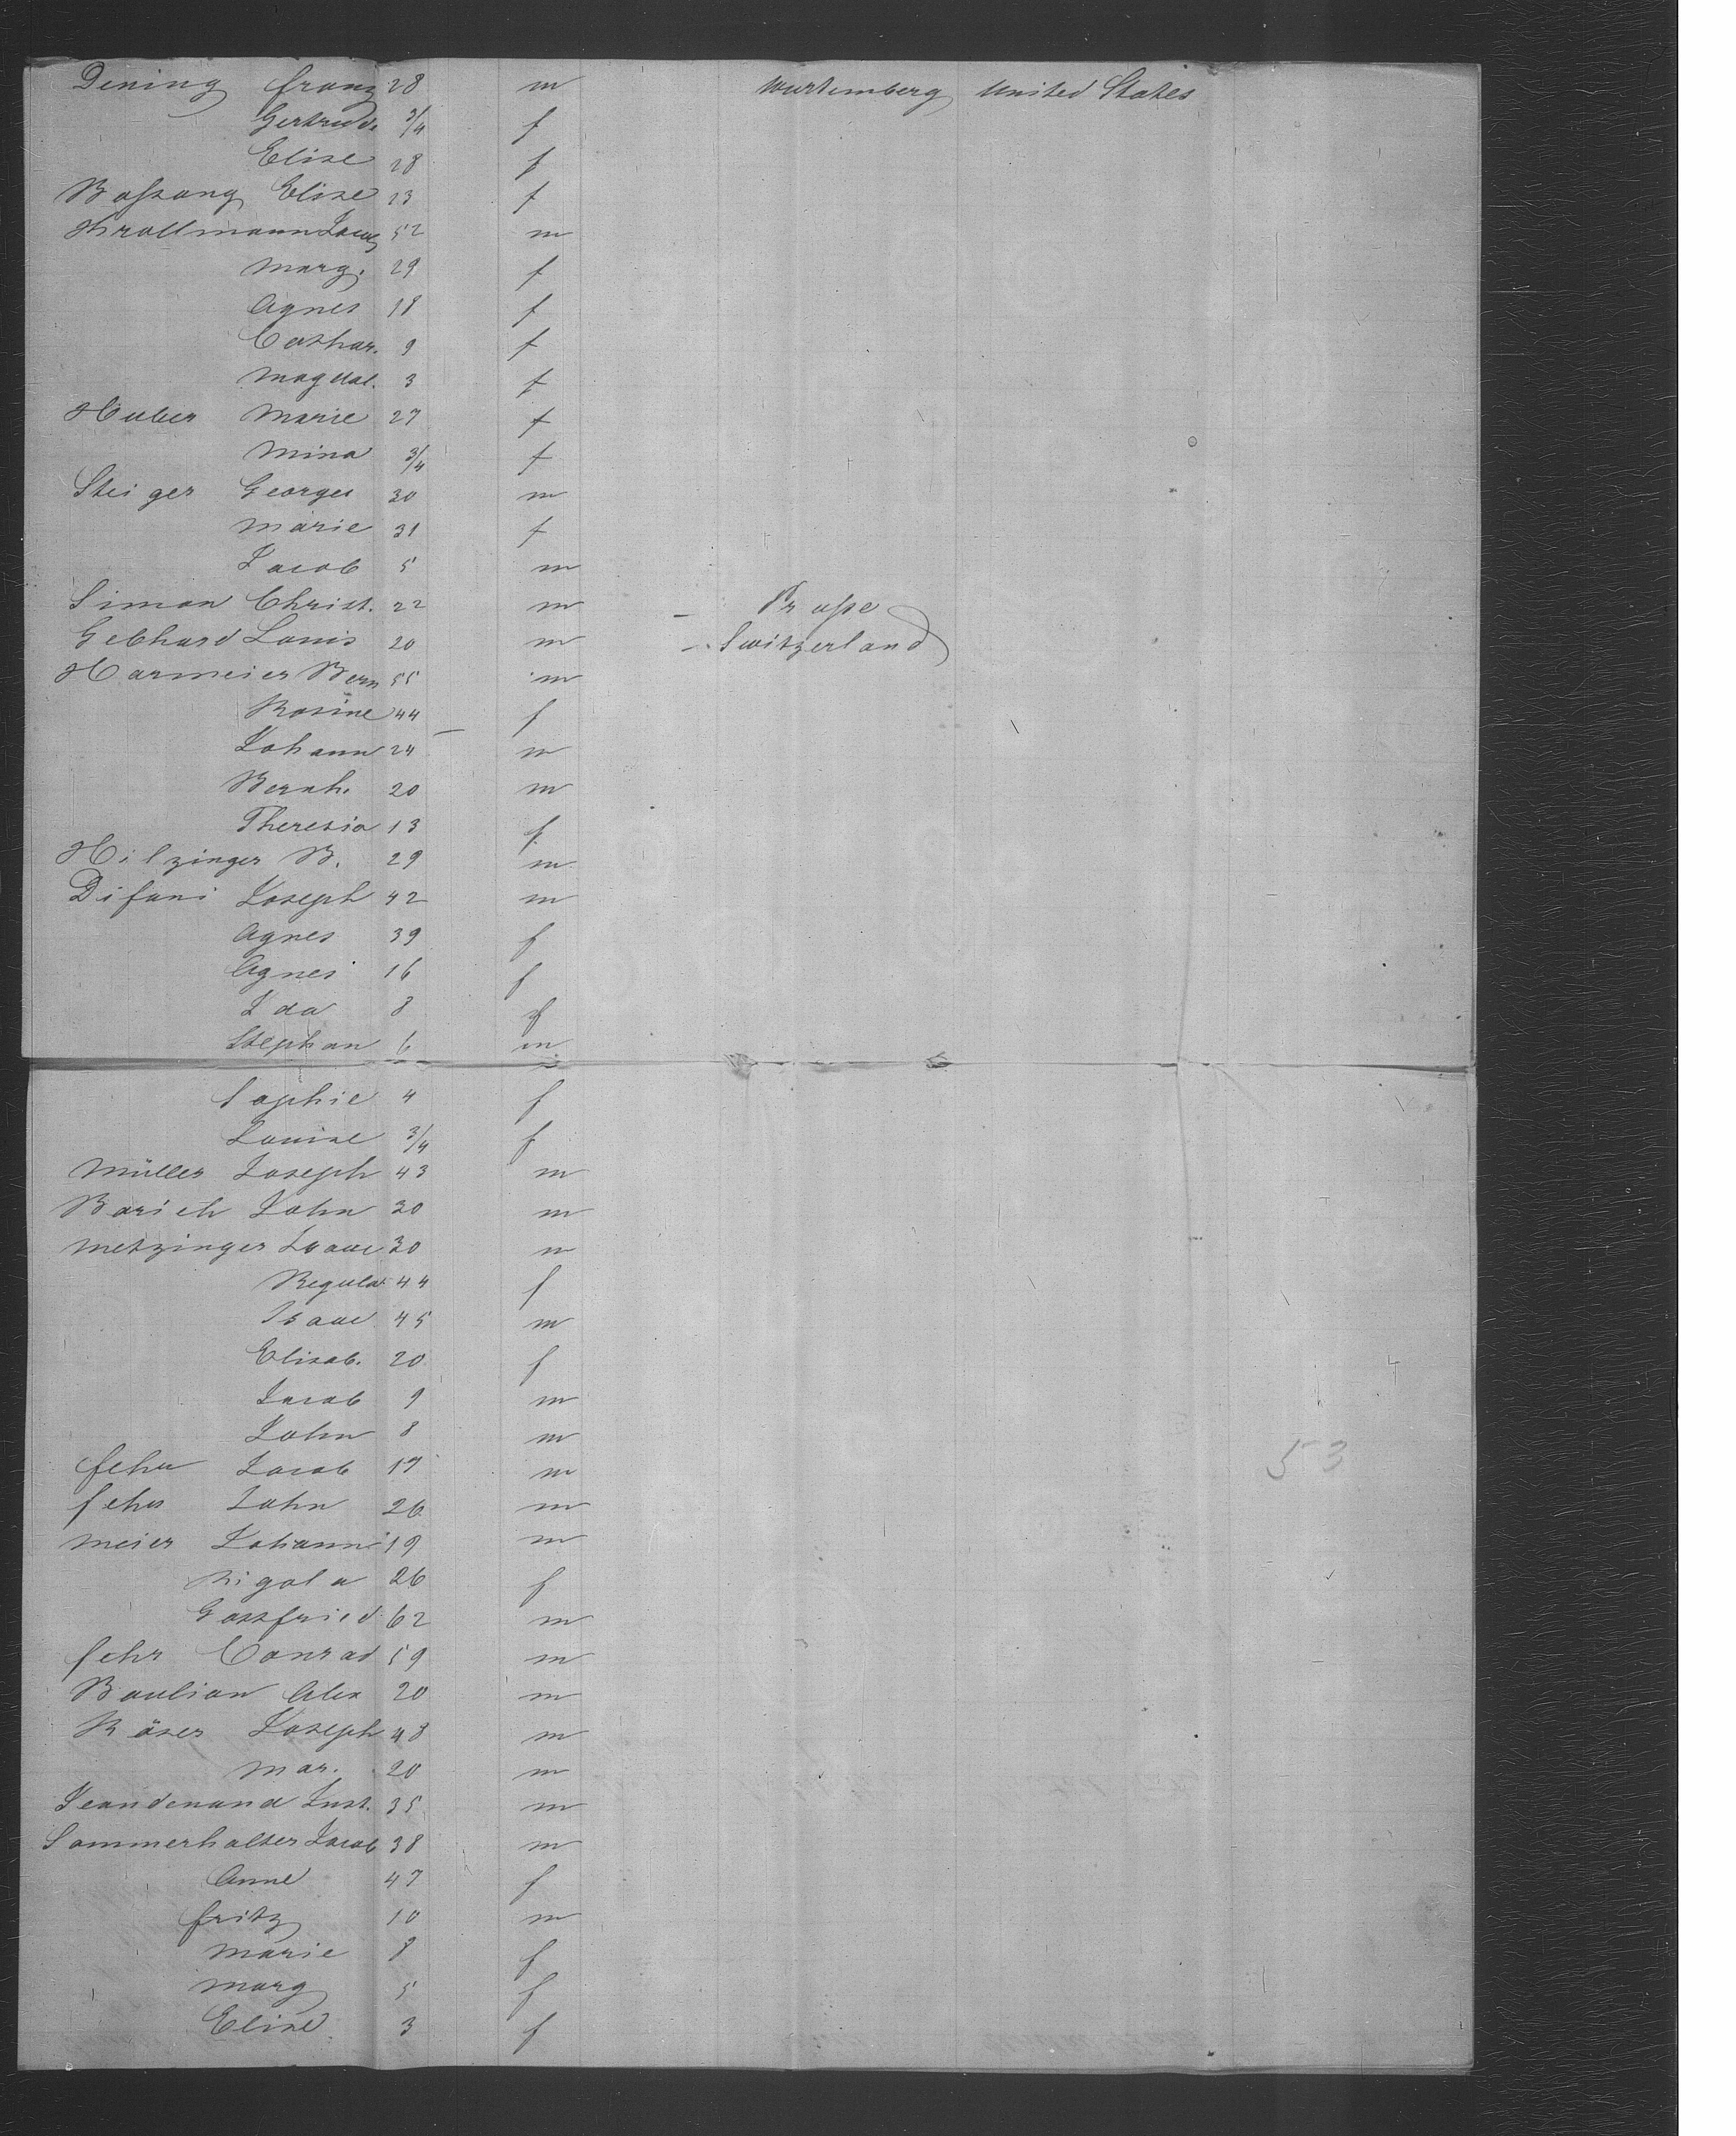 Dening Franz 28 m Wurtemberg United States
Gertrud. 3/4 f
Elise 28 f
Bossang Elise 23 f
Krollmann Jacob 52 m
Marg. 29 f
Agnes 18 f
Cathar. 9 f
Magdal. 3 f
Huber Marie 27 f
Mina 3/4 f
Steiger Georges 30 m
Marie 31 f
Jacob 5 m
Simon Christ. 22 m – Prusse
Gebhard Louis 20 m – Switzerland
Harmeier Bern 55 m
Rosine 44 f
Johann 24 m
Bernh. 20 m
Theresia 13 f
Hilzinger B. 29 m
Difani Joseph 42 m
Agnes 39 f
Agnes 16 f
Ida 8 f
Stephan 6 m
Sophie 4 f
Louise 3/4 f
Müller Joseph 43 m
Barich John 30 m
Metzinger Isaac 30 m
Regula 44 f
Isaac 45 m
Elisab. 20 f
Jacob 9 m
John 8 m
Fehr Jacob 17 m
53
Fehr John 26 m
Meier Johann 19 m
Rigola 26 f
Gottfried 62 m
Fehr Conrad 59 m
Baulian Alex 20 m
Röser Joseph 48 m
Mar. 20 m
Jeandenand Just. 35 m
Sommerhalter Jacob 38 m
Anne 47 f
Fritz 10 m
Marie 8 f
Marg 5 f
Elise 3 f